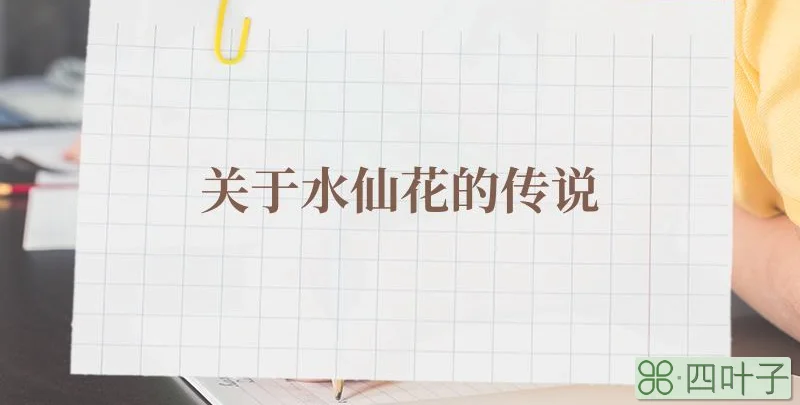 关于水仙花的传说
四叶子